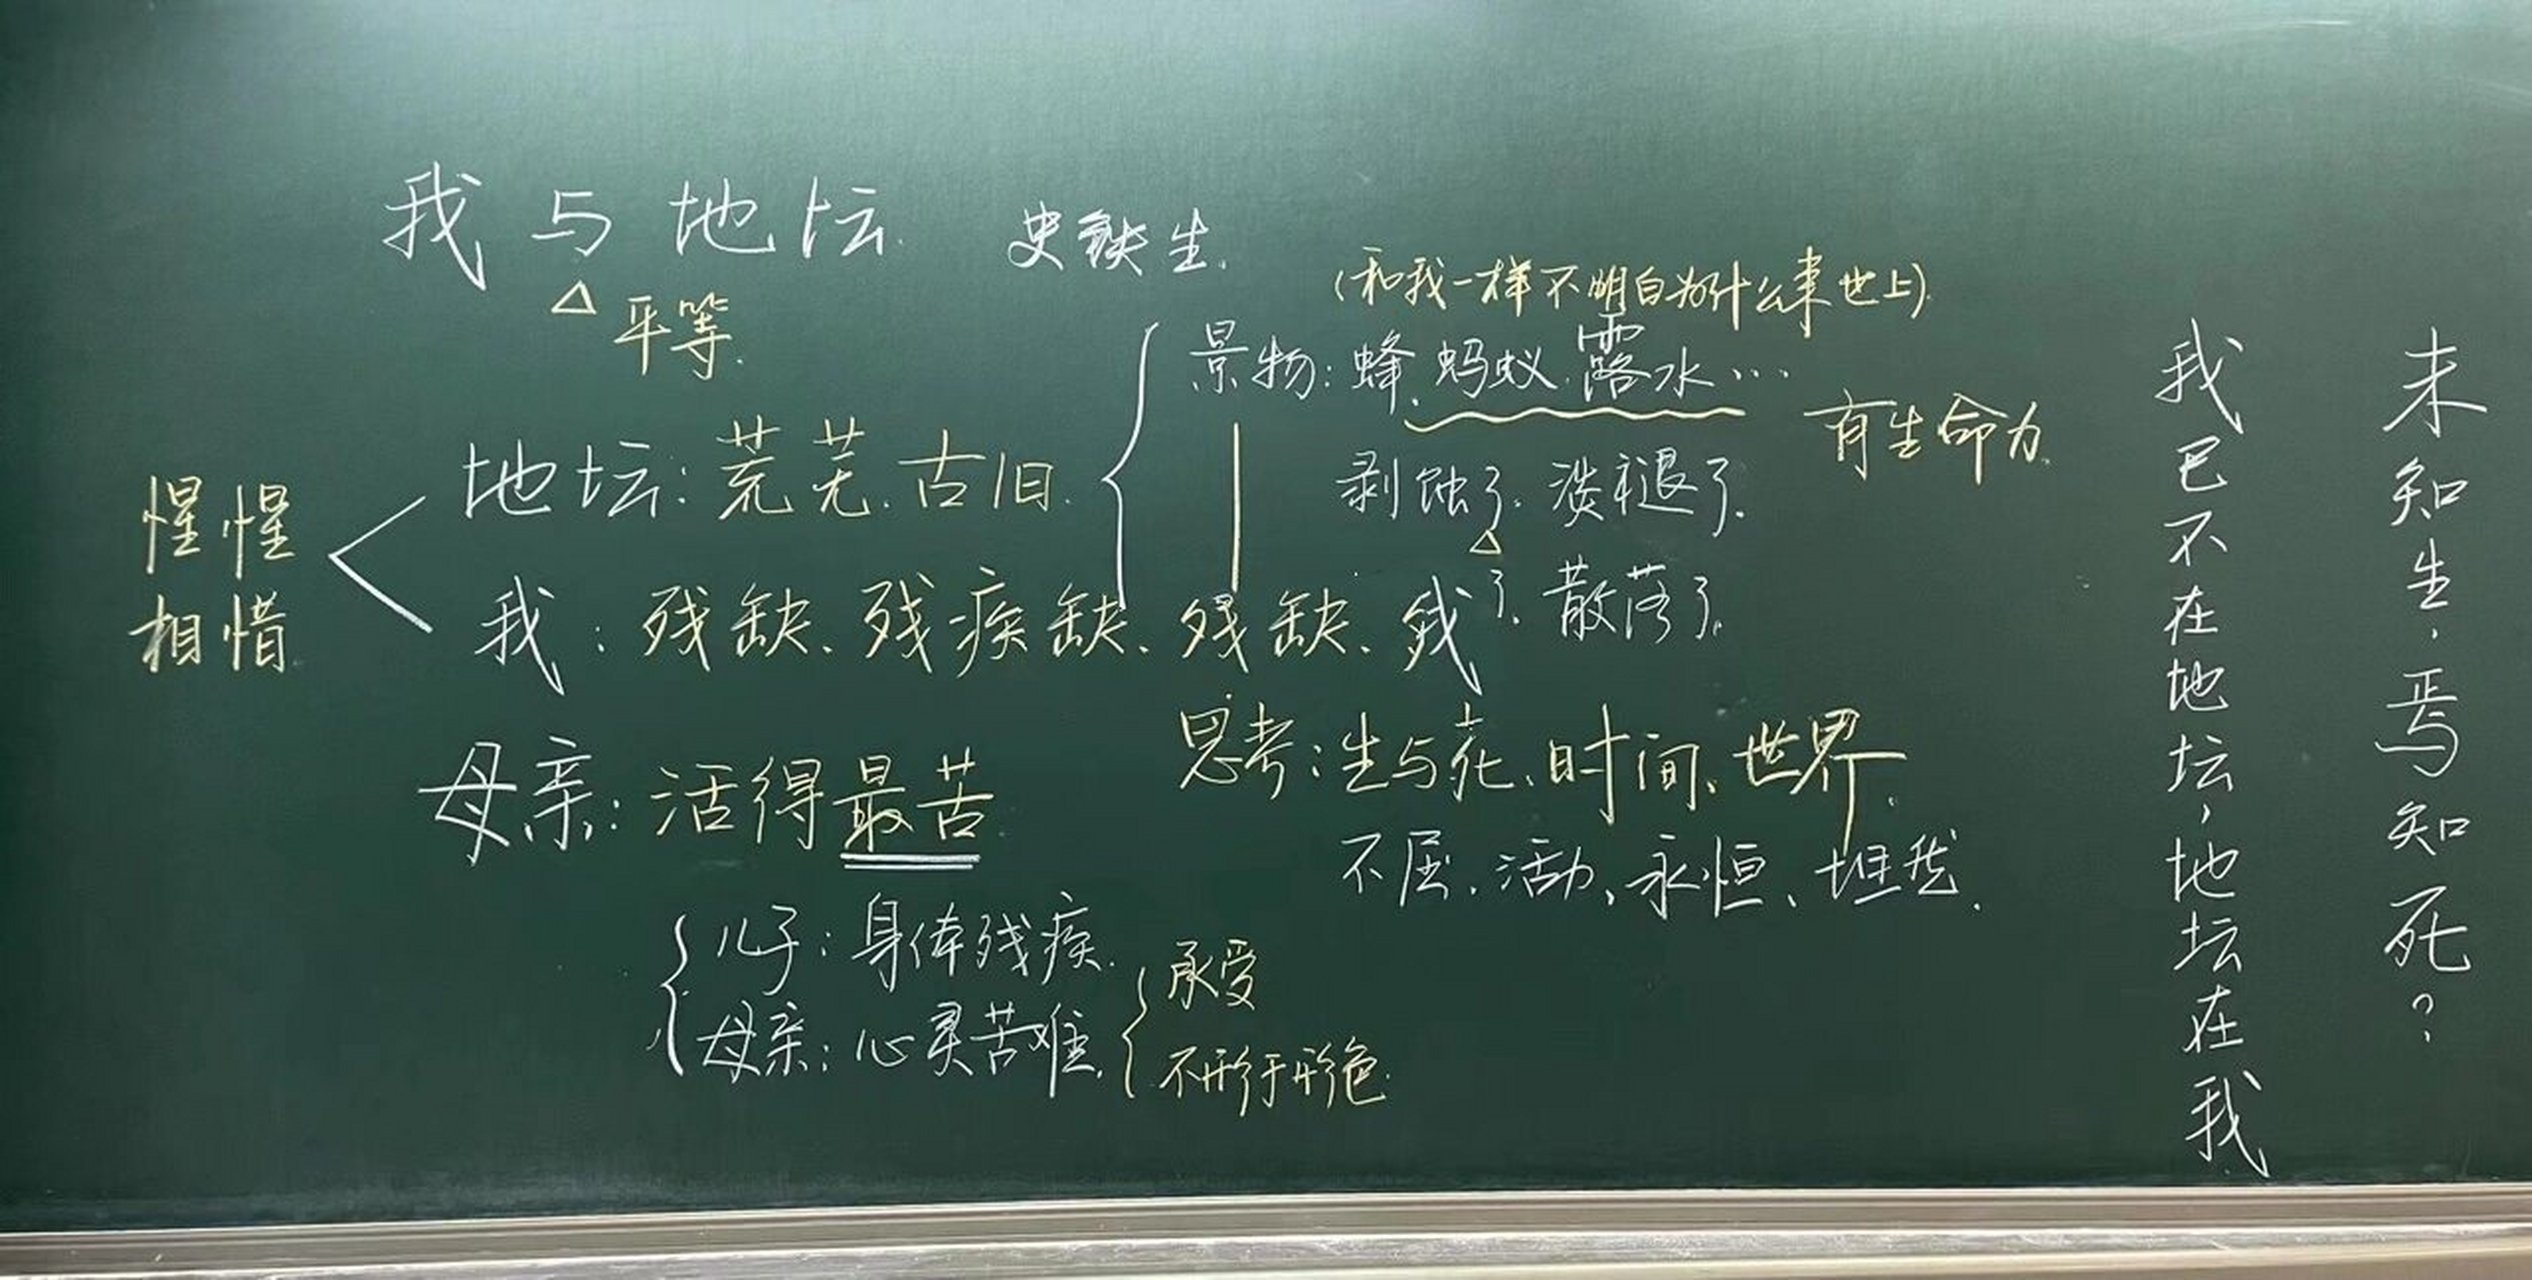 我与地坛 史铁生
平等
(和我一样不明白为什么来世上)
景物:蜂、蚂蚁、露水…
有生命力
惺惺
相惜
地坛:荒芜、古旧
剥蚀了、淡褪了
我:残缺、残疾缺、残缺、残
了、散落了
思考:生与死、时间、世界
不屈、活动、永恒、
母亲:活得最苦
儿子:身体残疾
母亲:心灵苦难
承受
不形于形色
我已不在地坛,地坛在我
未知生,焉知死?